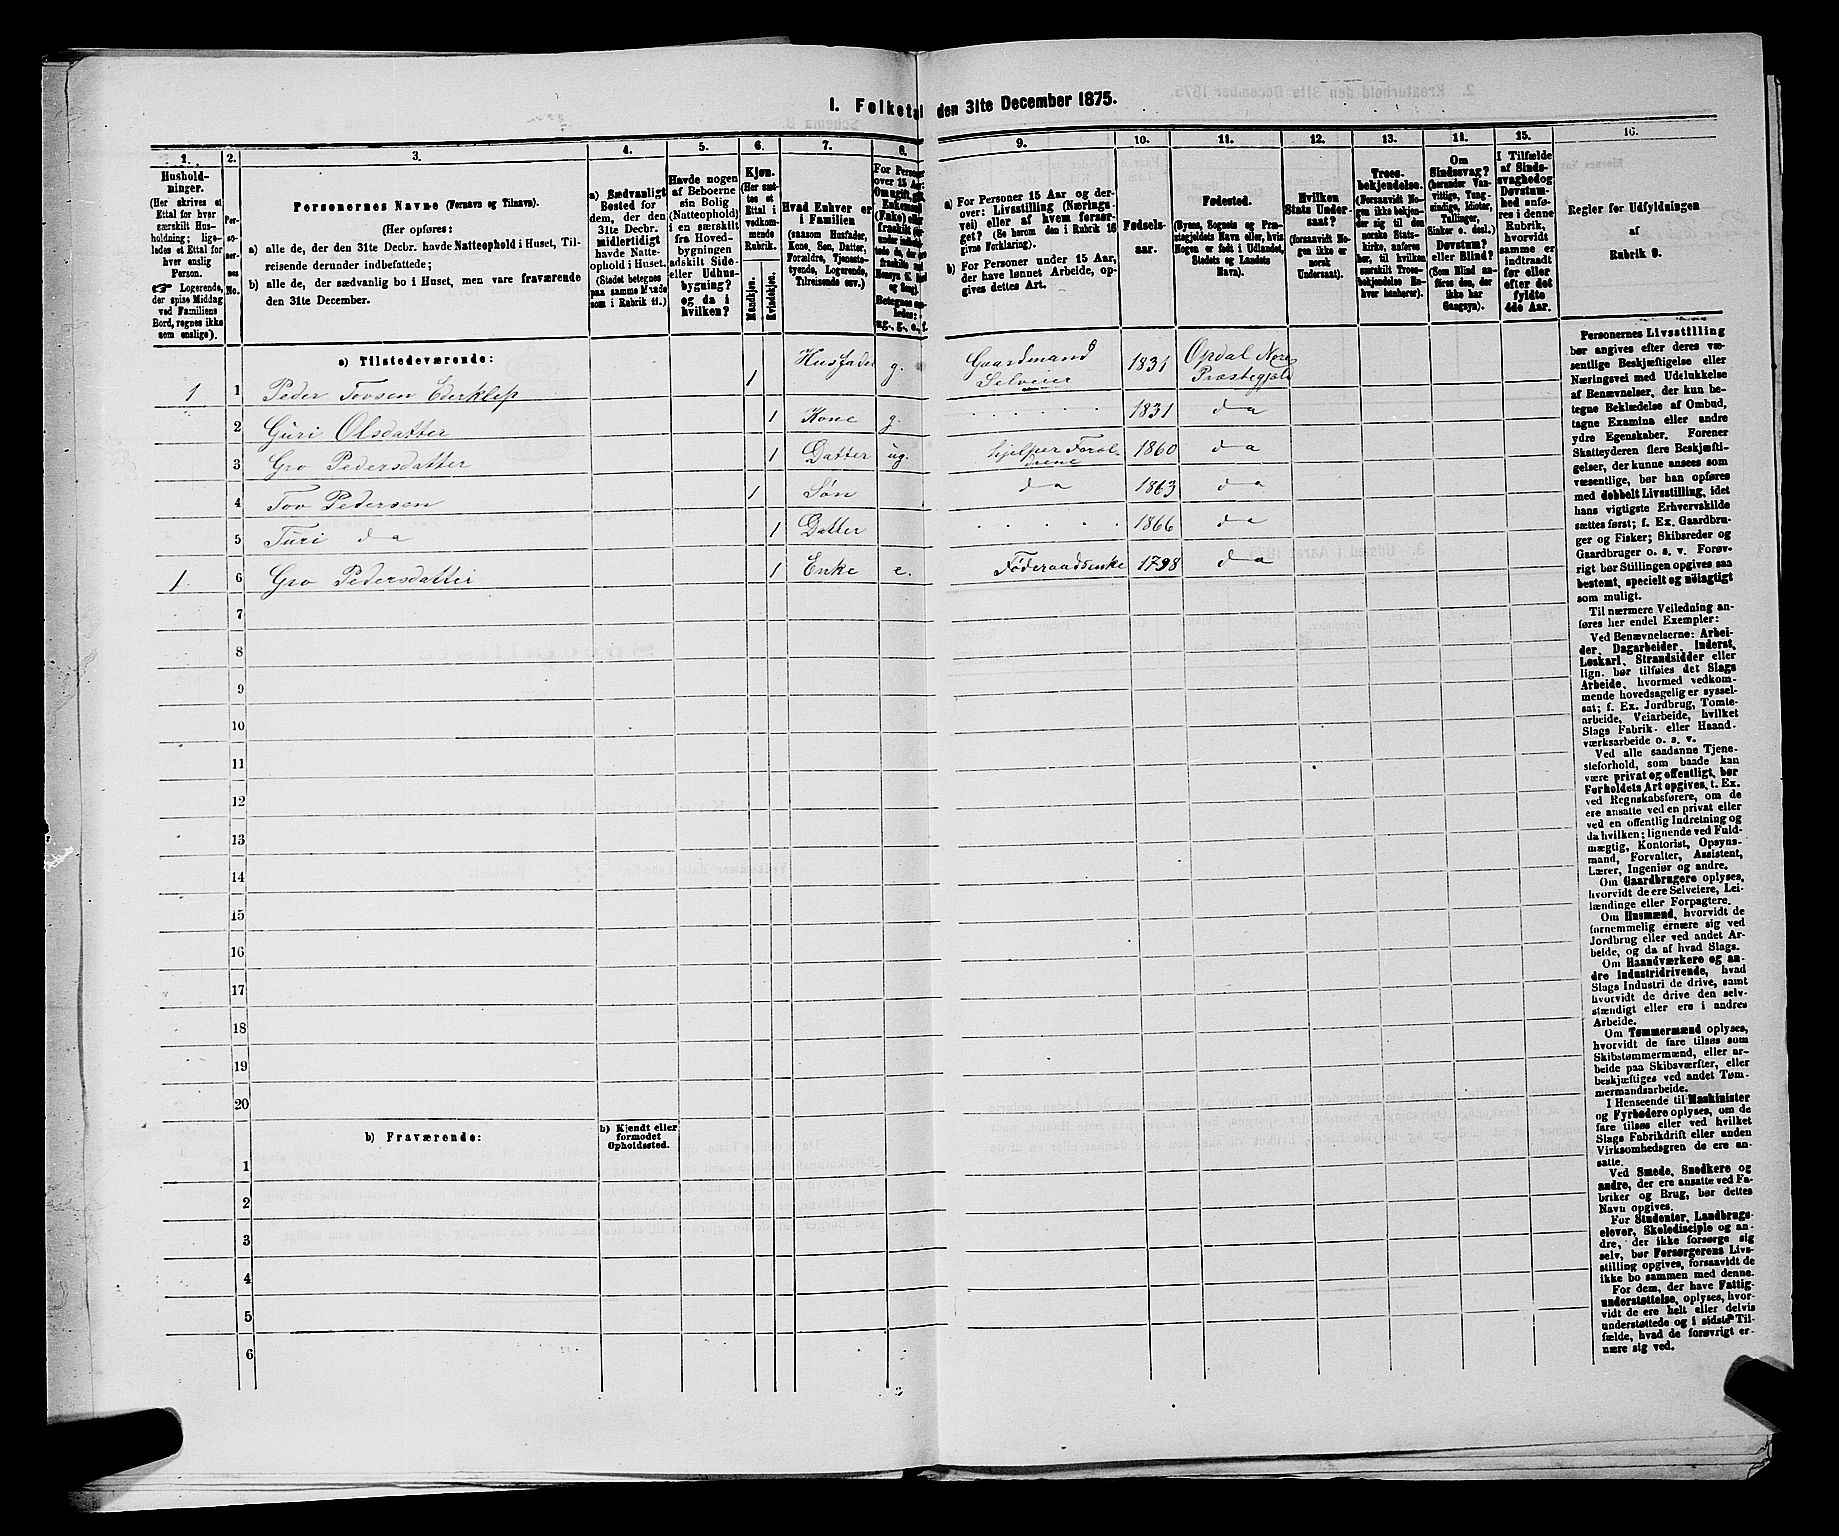 I. Folketal den 31te December 1875.
1.
2.
3.
4.
5.
6.
7.
8.
9.
10.
11.
12.
13.
14.
15.
16.
Hushold-
ninger.
(Her skrives et
Ettal for hver
særskilt Hus-
holdning; lige-
ledes et Ettal for
hver enslig
Person.
☛ Logerende,
der spise Middag
ved Familiens
Bord, regnes ikke
som enslige).
Per-
so-
ner-
nes
No.
Personernes Navne (Fornavn og Tilnavn).
(Her opføres:
a) alle de, der den 31te Decbr. havde Natteophold i Huset, Til-
reisende derunder indbefattede;
b) alle de, der sædvanlig bo i Huset, men vare fraværende
den 31te December.
a) Sædvanligt
Bosted for
dem, der den
31te Decbr.
midlertidigt
havde Natte-
ophold i Huset.
(Stedet betegnes
paa samme Maade
som i Rubrik 11.)
Havde nogen
af Beboerne
sin Bolig
(Natteophold)
i en særskilt
fra Hoved-
bygningen
adskilt Side-
eller Udhus-
bygning?
og da i
hvilken?
Kjøn.
(Her sæt-
tes et
Ettal i
vedkom-
mende
Rubrik.
Mandkjøn.
Kvindekjøn.
Hvad Enhver er
i Familien
(saasom Husfader,
Kone, Søn, Datter,
Forældre, Tjeneste-
tyende, Logerende,
Tilreisende osv.)
For Personer
over 15 Aar:
ug., g., e., f.
a) For Personer 15 Aar og der-
over: Livsstilling (Nærings-
vei) eller af hvem forsør-
get? (Se herom den i Rubrik 16
givne Forklaring).
b) For Personer under 15 Aar,
der have lønnet Arbeide, op-
gives dettes Art.
Fødsels-
aar.
Fødested.
(Byens, Sognets og Præ-
stegjeldets Navn eller, hvis
Nogen er født i Udlandet,
Stedets og Landets
Navn).
Hvilken
Stats Under-
saat?
(forsaavidt No-
gen ikke er
norsk
Undersaat).
Troes-
bekjendelse.
(Forsaavidt No-
gen ikke bekjen-
der sig til den
norske Stats-
kirke, anføres
her, til hvilken
særskilt Troes-
bekjendelse En-
hver henhører).
Om
Sindssvag?
(herunder Van-
vittige, Tung-
sindige, Idioter,
Tullinger,
Sinker o. desl.)
Døvstum?
eller Blind?
(Som Blind an-
føres den, der
ikke har
Gangsyn).
I Tilfælde
af Sinds-
svaghed og
Døvstum-
hed anfø-
res i denne
Rubrik,
hvorvidt
samme er
indtraadt
før eller
efter det
fyldte
4de Aar.
Regler for Udfyldningen
af
Rubrik 9.
a) Tilstedeværende:
1 1 Peder Tovsen Ederklep 1 Husfader g. Gaardmand Selveier 1831 Opdal Nore Præstegjæld
2 Guri Olsdatter 1 Kone g. 1831 da
3 Gro Pedersdatter 1 Datter ug. hjelper Foræl-drene 1860 da
4 Tov Pedersen 1 Søn da 1863 da
5 Turi da 1 Datter 1866 da
1. 6 Gro Pedersdatter 1 Enke e. Føderaadsenke 1798 da
7
8
9
10
11
12
13
14
15
16
17
18
19
20
b) Fraværende:
b) Kjendt eller
formodet
Opholdssted.
1
2
3
4
5
6
Personernes Livsstilling
bør angives efter deres væ-
sentlige Beskjæftigelse eller
Næringsvei med Udelukkelse
af Benævnelser, der kun be-
tegne Beklædelse af Ombud,
tagne Examina eller andre
ydre Egenskaber. Forener
Skatteyderen flere Beskjæfti-
gelser, der kunne ansees som
væsentlige, bør han opføres
med dobbelt Livsstilling, idet
hans vigtigste Erhvervskilde
sættes først; f. Ex. Gaardbru-
ger og Fisker; Skibsreder og
Gaardbruger o. s. v. Forøv-
rigt bør Stillingen opgives saa
bestemt, specielt og nøiagtigt
som muligt.
Til nærmere Veiledning an-
føres her endel Exempler:
Ved Benævnelserne: Arbei-
der, Dagarbeider, Inderst,
Løskarl, Strandsidder eller
lign. bør tilføies det Slags
Arbeide, hvormed vedkom-
mende hovedsagelig er syssel-
sat; f. Ex. Jordbrug, Tomte-
arbeide, Veiarbeide, hvilket
Slags Fabrik- eller Haand-
værksarbeide o. s. v.
Ved alle saadanne Tjene-
steforhold, som baade kan
være privat og offentligt, bør
Forholdets Art opgives, t. Ex.
ved Regnskabsførere, om de
ere ansatte ved en privat eller
ved en offentlig Indretning og
da hvilken; lignende ved Fuld-
mægtig, Kontorist, Opsyns-
mand, Forvalter, Assistent,
Lærer, Ingeniør og andre.
Om Gaardbrugere oplyses,
hvorvidt de ere Selveiere, Lei-
lændinge eller Forpagtere.
Om Husmænd, hvorvidt de
fornemmelig ernære sig ved
Jordbrug eller ved andet Ar-
beide, og da af hvad Slags.
Om Haandværkere og an-
dre Industridrivende, hvad
Slags Industri de drive, samt
hvorvidt de drive den selv-
stændigt eller ere i andres
Arbeide.
Om Tømmermænd oplyses,
hvorvidt de fare tilsøs som
Skibstømmermænd, eller ar-
beide paa Skibsværfter, eller
beskjæftiges ved andet Tøm-
mermandsarbeide.
I Henseende til Maskinister
og Fyrbødere oplyses, om de
fare tilsøs eller ved hvilket
Slags Fabrikdrift eller anden
Virksomhedsgren de ere an-
satte.
Ved Smede, Snedkere og
andre, der ere ansatte ved Fa-
briker og Brug, bør dettes
Navn opgives.
For Studenter, Landbrugs-
elever, Skoledisciple og an-
dre, der ikke forsørge sig
selv, bør Forsørgerens Livs-
stilling opgives, forsaavidt de
ikke bo sammen med denne.
For dem, der have Fattig-
understøttelse, oplyses, hvor-
vidt de ere helt eller delvis
understøttede og i sidste Til-
fælde, hvad de forøvrigt er-
nære sig ved.